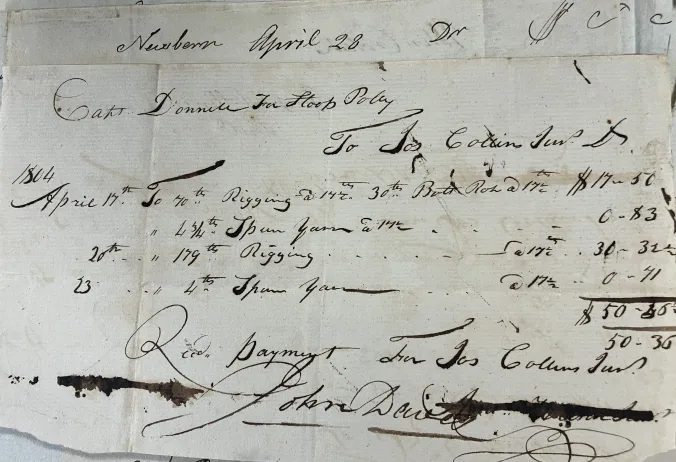 Newbern April 28 Dr $ C C
Capt Donnell For Sloop Polly
To Jos Collin Junr Dr
1804
April 17th To 70th Rigging @ 17½ 30th Bolt Rope @ 17½ $ 17 - 50
" 4¾th Spun Yarn @ 17½ 0 - 83
20th " 179th Rigging @ 17½ 30 - 32
23 " 4th Spun Yarn @ 17½ 0 - 71
$ 50 - 36
50 - 36
Recd. payment For Jos Collins Junr
John Davis